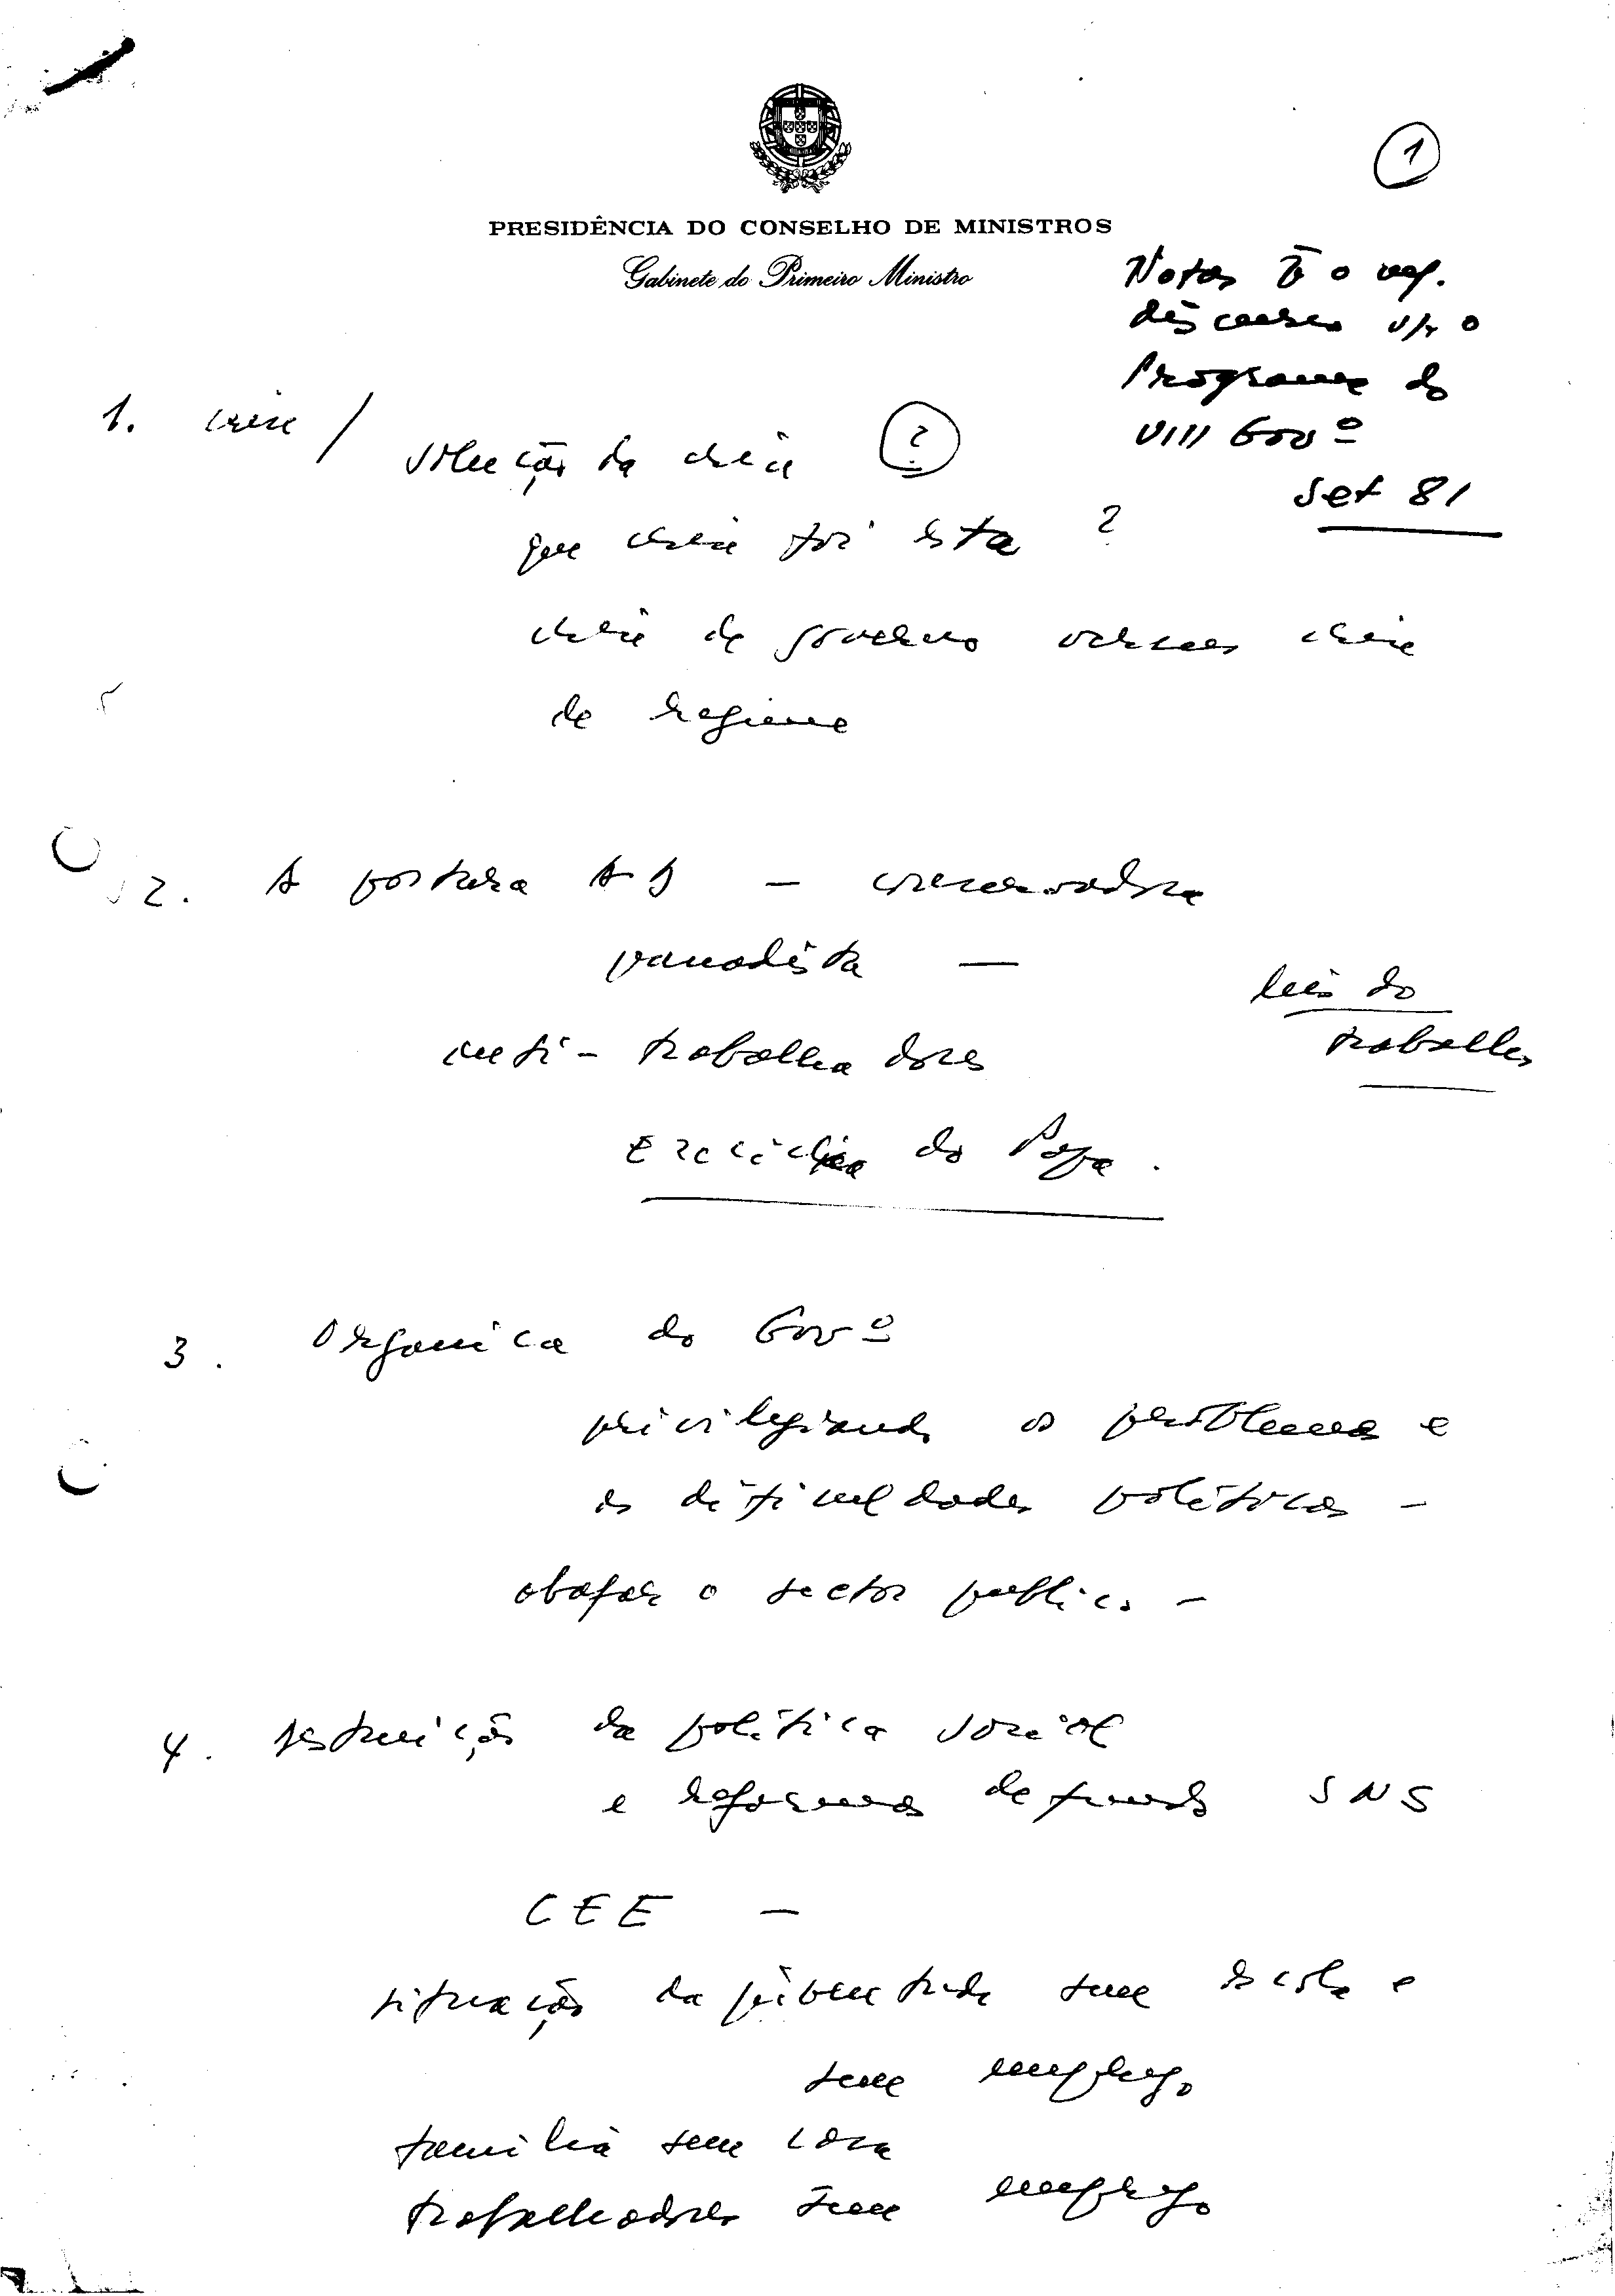 1
PRESIDÊNCIA DO CONSELHO DE MINISTROS
Gabinete do Primeiro Ministro
Notas p o
discurso s/ o
Programa do
VIII Govº
Set 81
1. crise /
solução da crise ?
que crise foi esta ?
crise de governo versus crise
de regime
2. A postura AD – conservadora
passadista —
leis do
trabalho
anti-trabalhadores
Encíclica do Papa.
3. Orgânica do Govº
privilegiando os problemas e
as dificuldades políticas –
abafar o sector público –
4. destruição da política social
e reformas de fundo SNS
CEE –
situação da juventude sem escola e
sem emprego
família sem casa
trabalhadores sem emprego